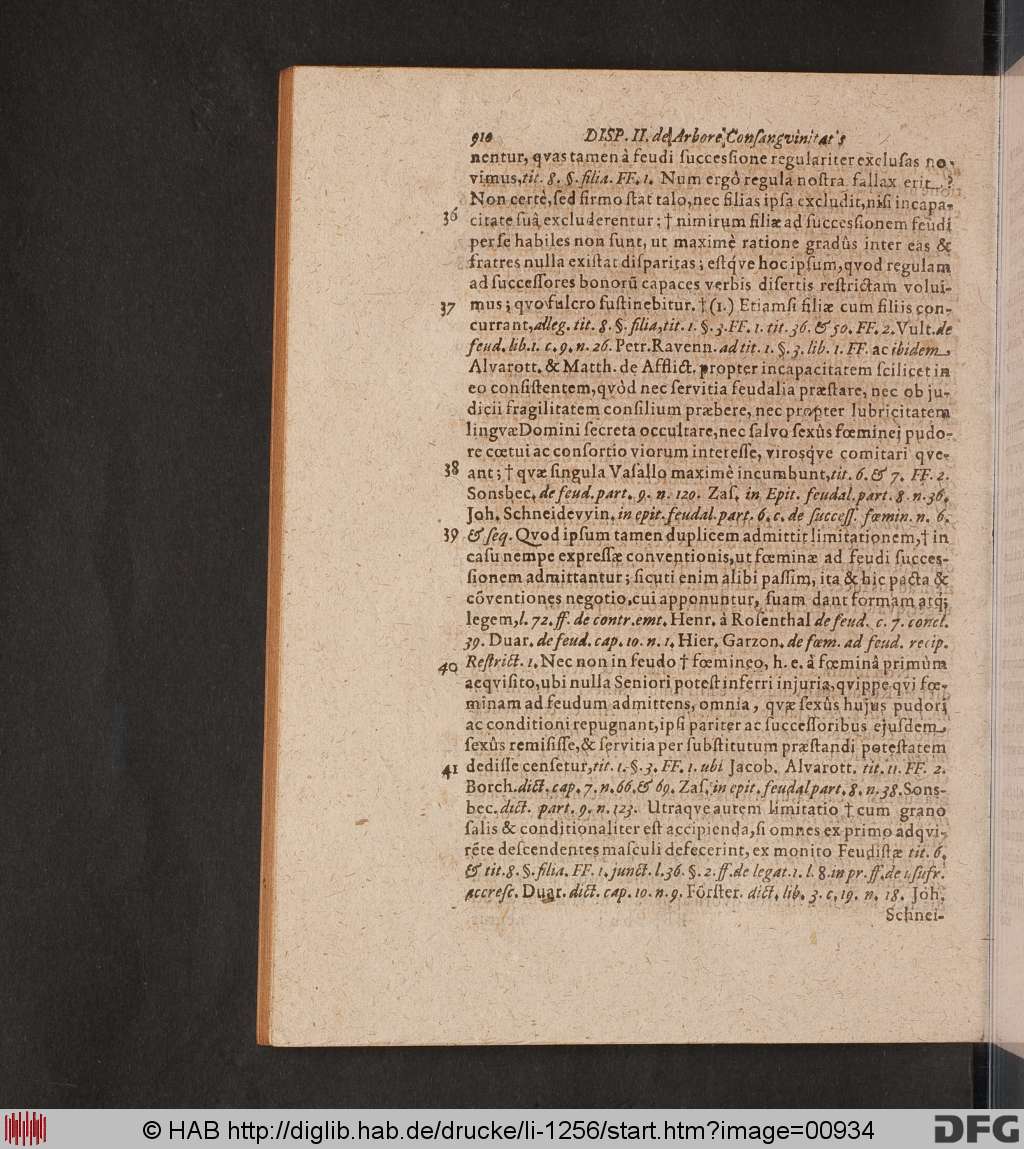 910 DISP. II. de Arbore Conſangvinitat's
nentur, qvas tamen à feudi ſucceſſione regulariter excluſas no-
vimus, tit. 8. §. filia. FF. 1. Num ergò regula noſtra fallax erit?
Non certè, ſed firmo ſtat talo, nec filias ipſa excludit, niſi incapa-
36 citate ſuâ excluderentur; † nimirum filiæ ad ſucceſſionem feudi
per ſe habiles non ſunt, ut maximè ratione gradûs inter eas &
fratres nulla exiſtat diſparitas; eſtq́ve hoc ipſum, qvod regulam
ad ſucceſſores bonorũ capaces verbis diſertis reſtrictam volui-
37 mus; qvo fulcro fuſtinebitur. † (1.) Etiamſi filiæ cum filiis con-
currant, alleg. tit. 8. §. filia, tit. 1. §. 3. FF. 1. tit. 36. & 50. FF. 2. Vult. de
feud. lib. 1. c. 9. n. 26. Petr. Ravenn. ad tit. 1. §. 3. lib. 1. FF. ac ibidem
Alvarott. & Matth. de Afflict. propter incapacitatem ſcilicet in
eo conſiſtentem, qvòd nec ſervitia feudalia præſtare, nec ob ju-
dicii fragilitatem conſilium præbere, nec propter lubricitatem
lingvæ Domini ſecreta occultare, nec ſalvo ſexûs fœminei pudo-
re cœtui ac conſortio viorum intereſſe, viroſq́ve comitari qve-
38 ant; † qvæ ſingula Vaſallo maximè incumbunt, tit. 6. & 7. FF. 2.
Sonsbec. de feud. part. 9. n. 120. Zaſ. in Epit. feudal. part. 8. n. 36.
Joh. Schneidevvin. in epit. feudal. part. 6. c. de ſucceſſ. fœmin. n. 6.
39 & ſeq. Qvod ipſum tamen duplicem admittit limitationem, † in
caſu nempe expreſſæ conventionis, ut fœminæ ad feudi ſucceſ-
ſionem admittantur; ſicuti enim alibi paſſim, ita & hic pacta &
cõventiones negotio, cui apponuntur, ſuam dant formam atq;
legem, l. 72. ff. de contr. emt. Henr. à Roſenthal de feud. c. 7. concl.
39. Duar. de feud. cap. 10. n. 1. Hier. Garzon. de fœm. ad feud. recip.
40 Reſtrict. 1. Nec non in feudo † fœmineo, h. e. à fœminâ primùm
acqviſito, ubi nulla Seniori poteſt inferri injuria, qvippe qvi fœ-
minam ad feudum admittens, omnia, qvæ ſexûs hujus pudori
ac conditioni repugnant, ipſi pariter ac ſucceſſoribus ejuſdem
ſexûs remiſiſſe, & ſervitia per ſubſtitutum præſtandi poteſtatem
41 dediſſe cenſetur, tit. 1. §. 3. FF. 1. ubi Jacob. Alvarott. tit. 11. FF. 2.
Borch. dict. cap. 7. n. 66. & 69. Zaſ. in epit. feudal part. 8. n. 38. Sons-
bec. dict. part. 9. n. 123. Utraqve autem limitatio † cum grano
ſalis & conditionaliter eſt accipienda, ſi omnes ex primo adqvi-
rente deſcendentes maſculi defecerint, ex monito Feudiſtæ tit. 6.
& tit. 8. §. filia. FF. 1. junct. l. 36. §. 2. ff. de legat. 1. l. 8. in pr. ff. de uſufr.
accreſc. Duar. dict. cap. 10. n. 9. Förſter. dict. lib. 3. c. 19. n. 18. Joh.
Schnei-
© HAB http://diglib.hab.de/drucke/li-1256/start.htm?image=00934
DFG